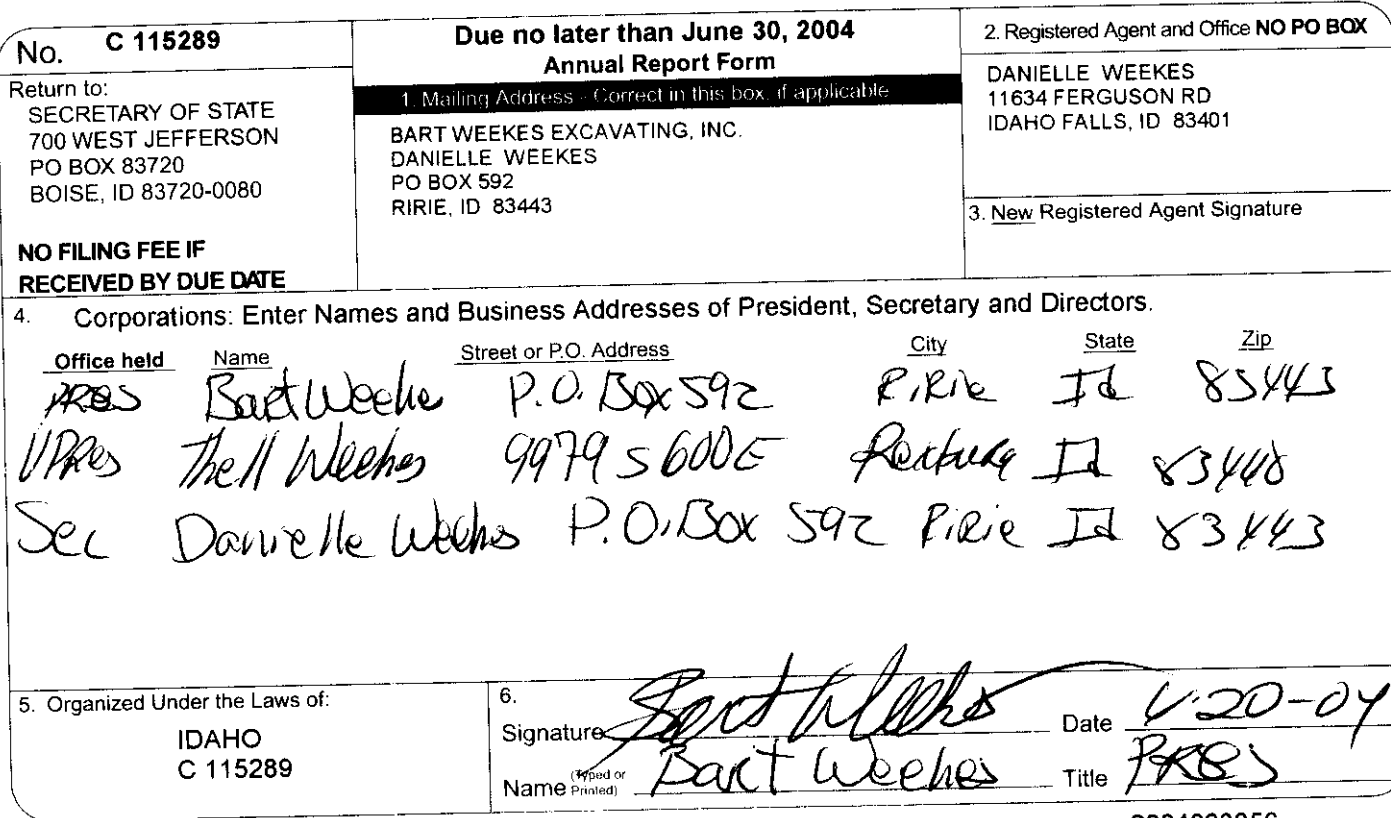 No. C 115289
Return to:
SECRETARY OF STATE
700 WEST JEFFERSON
PO BOX 83720
BOISE, ID 83720-0080
NO FILING FEE IF
RECEIVED BY DUE DATE
Due no later than June 30, 2004
Annual Report Form
1. Mailing Address - Correct in this box, if applicable
BART WEEKES EXCAVATING, INC.
DANIELLE WEEKES
PO BOX 592
RIRIE, ID 83443
2. Registered Agent and Office NO PO BOX
DANIELLE WEEKES
11634 FERGUSON RD
IDAHO FALLS, ID 83401
3. New Registered Agent Signature
4. Corporations: Enter Names and Business Addresses of President, Secretary and Directors.
Office held Name Street or P.O. Address City State Zip
PRES Bart Weeke P.O. Box 592 RiRie Id 83443
VPRes Thell Weekes 9979 S 600 E Rexburg Id 83440
Sec Danielle Weekes P.O. Box 592 RiRie Id 83443
5. Organized Under the Laws of:
IDAHO
C 115289
6.
Signature Bart Weekes Date 4-20-04
Name (Typed or Printed) Bart Weekes Title PRES